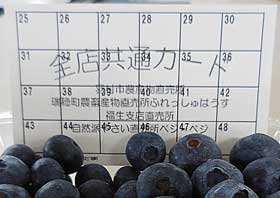 25 26 27 28 29 30
31 32 33 34 35 36
全店共通カード
37 38 39 40 41 42
市農産物直売所
瑞穂町農畜産物直売所ふれっしゅはうす
福生支店直売所
43 44 45 46 47 48
自然派やさい直売所ベジベジ